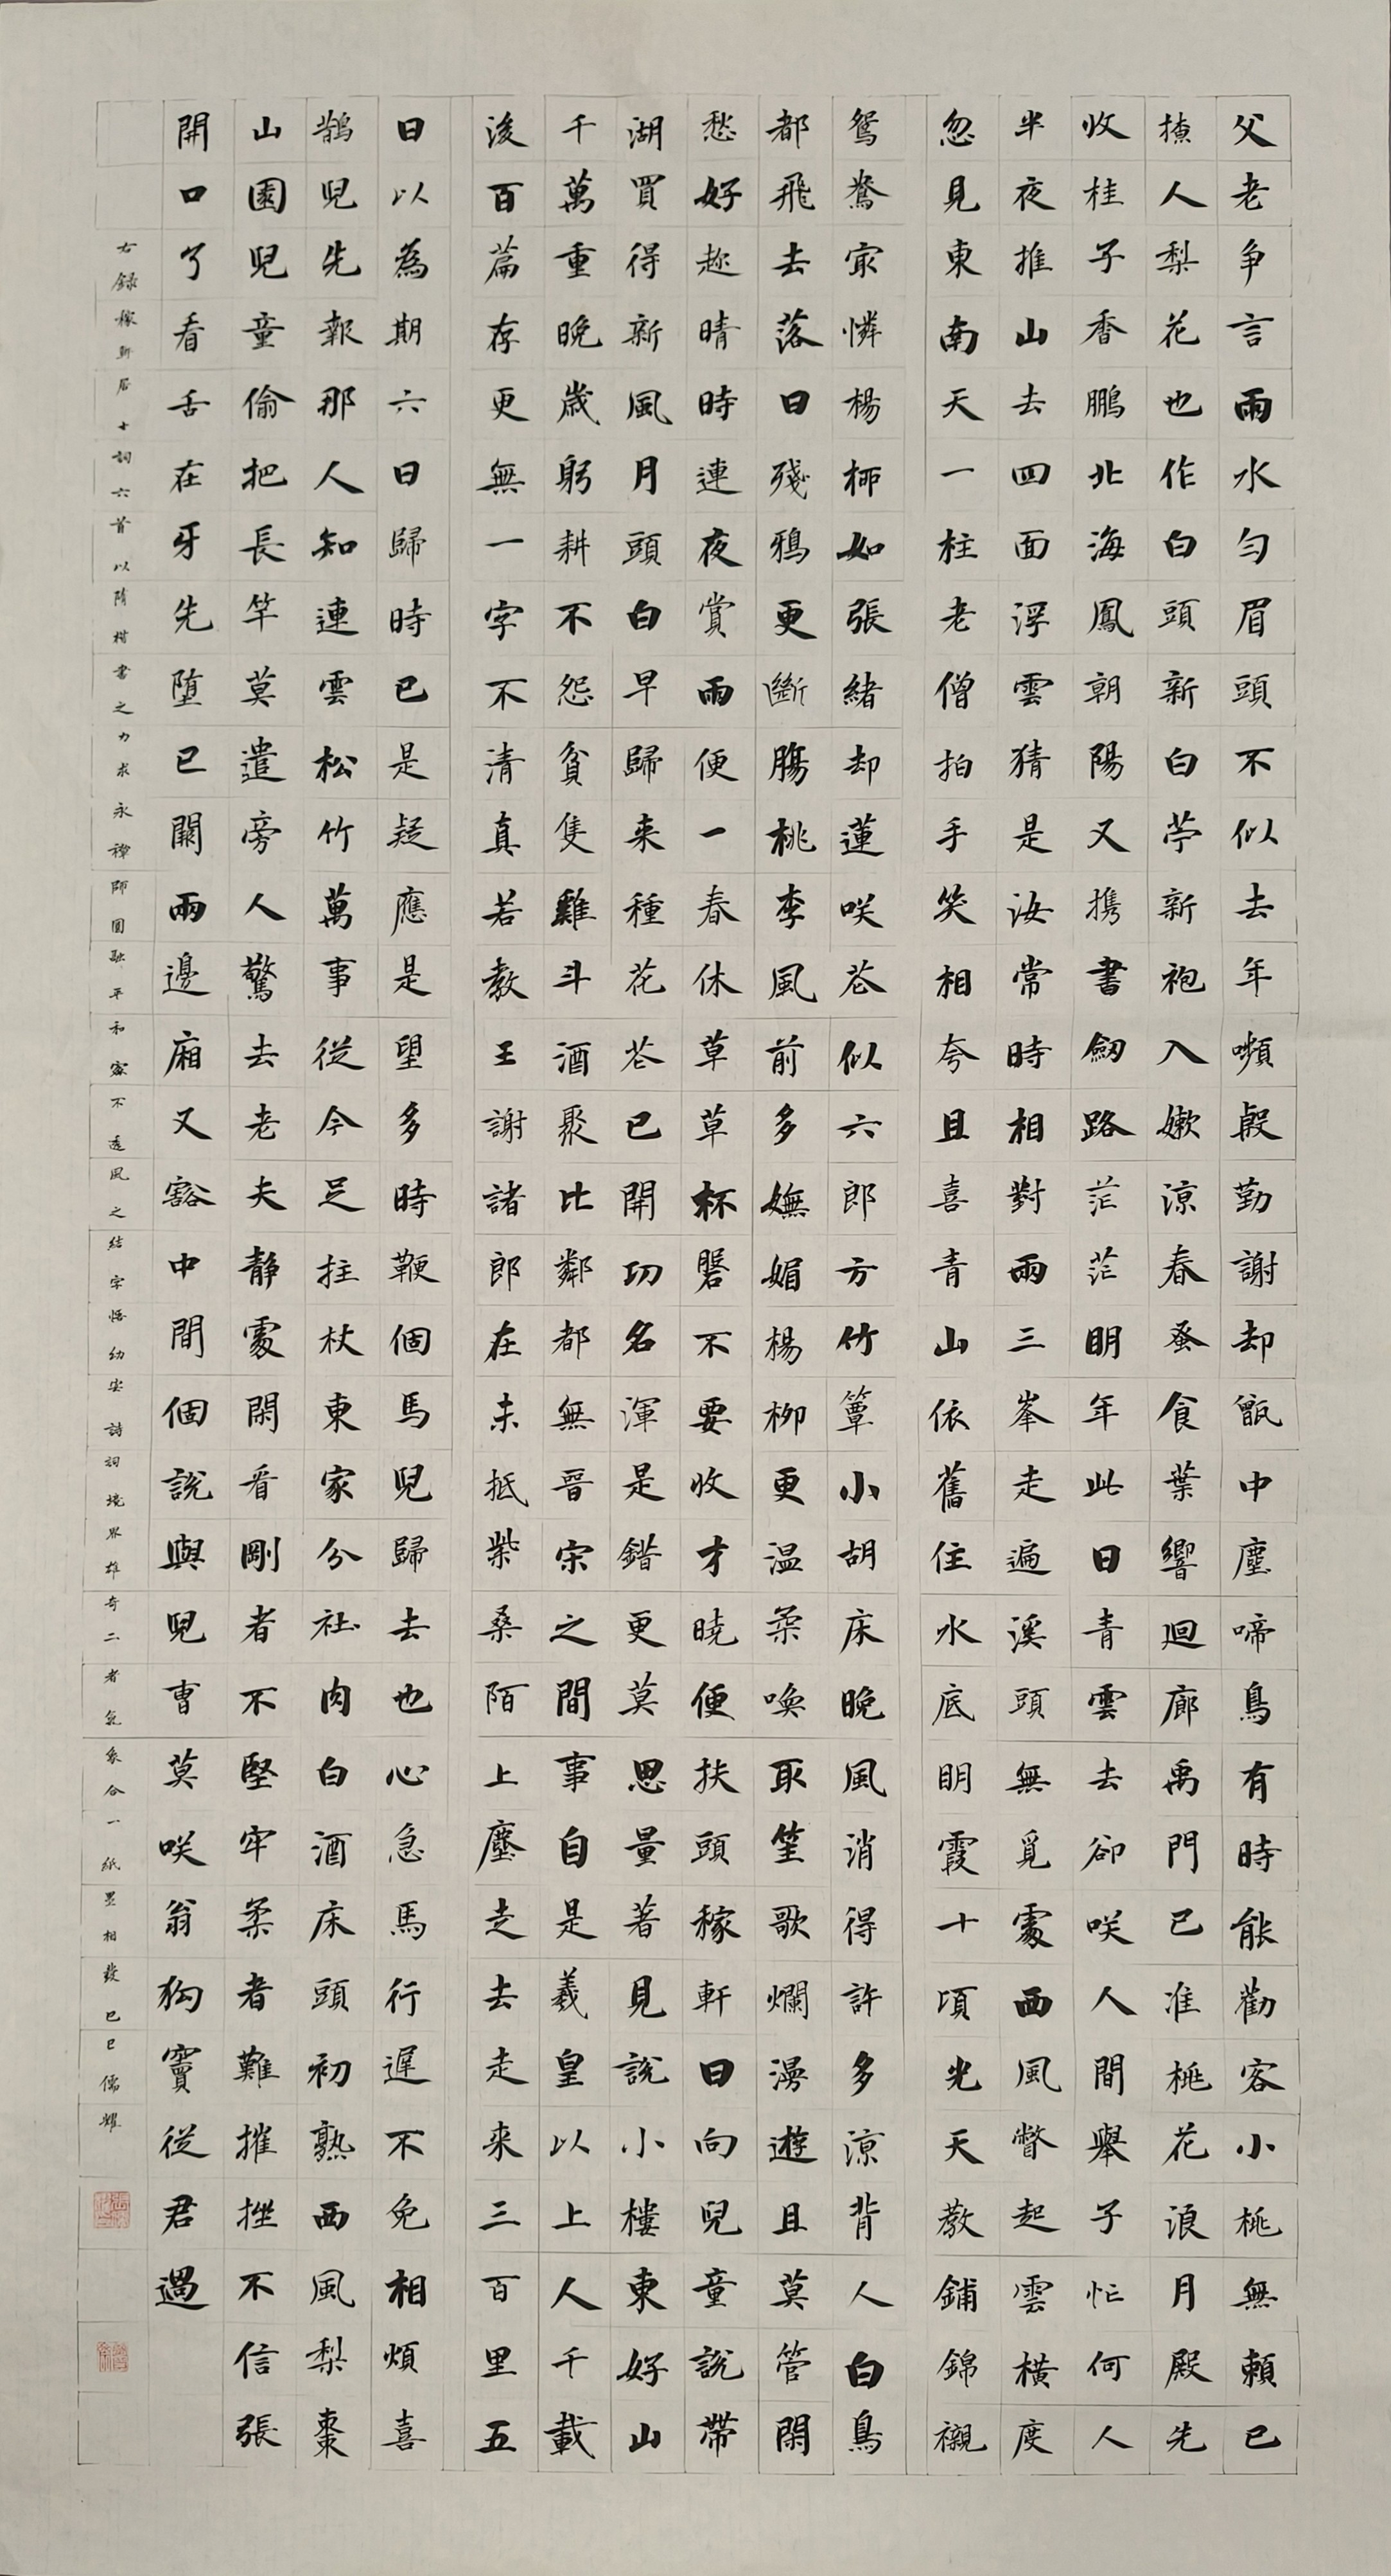 父老争言雨水匀眉頭不似去年嚬殷勤謝却甑中塵啼鳥有時能勸客小桃無賴已
撩人梨花也作白頭新白苧新袍入嫩涼春蚕食葉響迴廊禹門已准桃花浪月殿先
收桂子香鵬北海鳳朝陽又携書劒路茫茫明年此日青雲去卻咲人間舉子忙何人
半夜推山去四面浮雲猜是汝常時相對兩三峯走遍溪頭無覓處西風瞥起雲橫度
忽見東南天一柱老僧拍手笑相夸且喜青山依舊住水底明霞十頃光天教鋪錦襯
鴛鴦㝡憐楊柳如張緒却蓮咲花似六郎方竹簟小胡床晚風消得許多涼背人白鳥
都飛去落日殘鴉更斷腸桃李風前多嫵媚楊柳更温柔喚取笙歌爛漫遊且莫管閑
愁好趂晴時連夜賞雨便一春休草草杯盤不要收才曉便扶頭稼軒日向兒童說帶
湖買得新風月頭白早歸来種花花已開功名渾是錯更莫思量著見說小樓東好山
千萬重晚歲躬耕不怨貧隻雞斗酒聚比鄰都無晋宋之間事自是羲皇以上人千載
後百篇存更無一字不清真若教王謝諸郎在未抵柴桑陌上塵走去走来三百里五
日以為期六日歸時已是疑應是望多時鞭個馬兒歸去也心急馬行遲不免相煩喜
鵲兒先報那人知連雲松竹萬事從今足拄杖東家分社肉白酒床頭初熟西風梨棗
山園兒童偷把長竿莫遣旁人驚去老夫静處閑看剛者不堅牢柔者難摧挫不信張
開口了看舌在牙先堕已闕兩邊廂又豁中間個說與兒曹莫咲翁狗竇從君過
右録稼軒居十詞六首以隋楷書之力求永禪師圓融平和密不透風之結字悟幼安詩詞境界雄奇二者氣象合一紙墨相發已巳儒耀